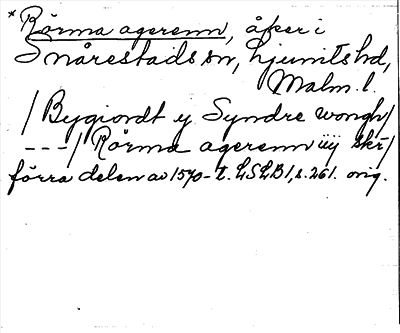 * Rörma agerenn, åker i
Snårestads sn, Ljunits hd,
Malm. l.
/Bygiordt y Syndre wongh/
---/Rörma agerenn iiij skr/
förra delen av 1570-t. LSLB1, s. 261. orig.